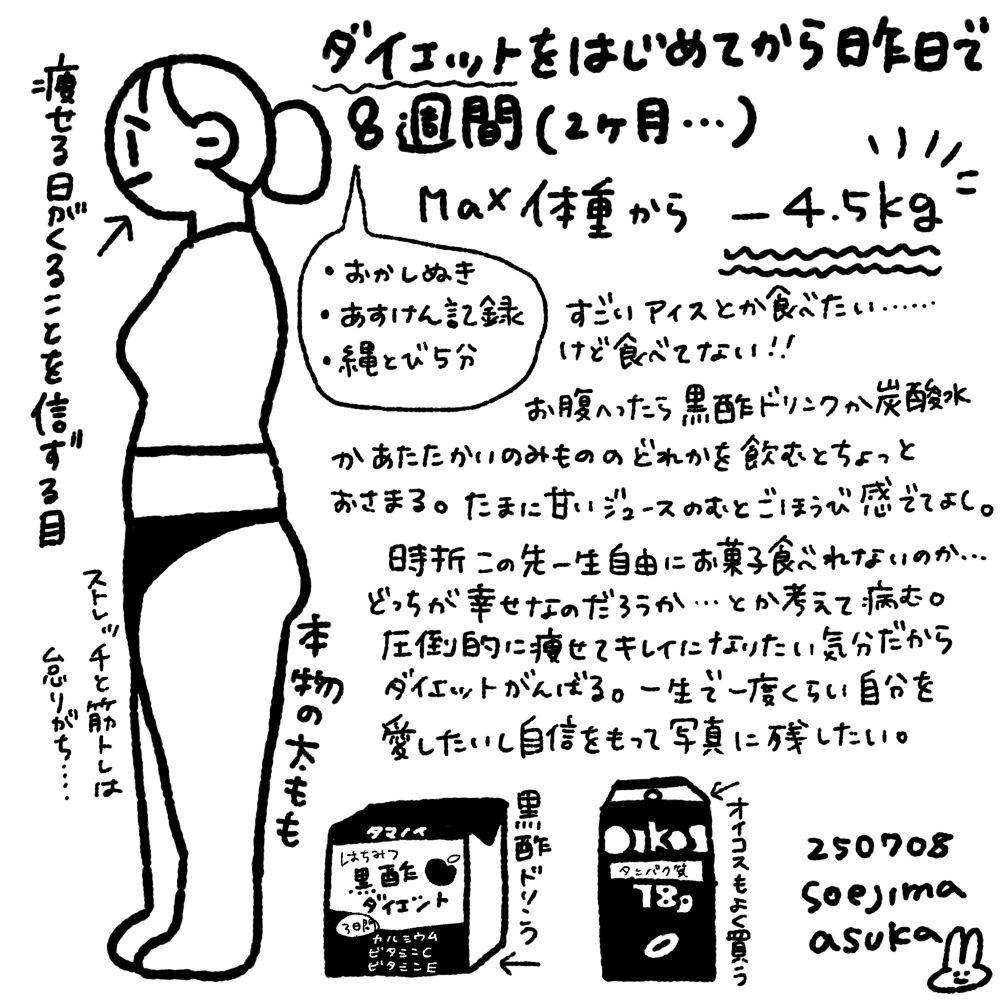 ダイエットをはじめてから昨日で
8週間(2ヶ月…)
Max体重から −4.5kg
・おかしぬき
・あすけん記録
・縄とび5分
すごいアイスとか食べたい……
けど食べてない!!
お腹へったら黒酢ドリンクか炭酸水
かあたたかいのみもののどれかを飲むとちょっと
おさまる。たまに甘いジュースのむとごほうび感でてよし。
時折この先一生自由にお菓子食べれないのか…
どっちが幸せなのだろうか…とか考えて病む。
圧倒的に痩せてキレイになりたい気分だから
ダイエットがんばる。一生で一度くらい自分を
愛したいし自信をもって写真に残したい。
痩せる日がくることを信ずる目
ストレッチと筋トレは
怠りがち….
本物の太もも
タマノイ
はちみつ
黒酢
ダイエット
3日間
カルシウム
ビタミンC
ビタミンE
黒酢ドリンク
oikos
タンパク質
18g
オイコスもよく買う
250708
soejima
asuka